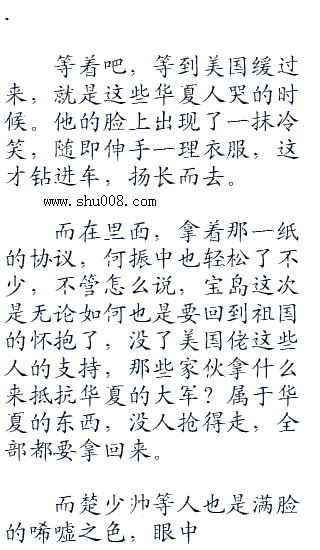 .
等着吧，等到美国缓过
来，就是这些华夏人哭的时
候。他的脸上出现了一抹冷
笑，随即伸手一理衣服，这
才钻进车，扬长而去。
www.shu008.com
而在里面，拿着那一纸
的协议，何振中也轻松了不
少，不管怎么说，宝岛这次
是无论如何也是要回到祖国
的怀抱了，没了美国佬这些
人的支持，那些家伙拿什么
来抵抗华夏的大军？属于华
夏的东西，没人抢得走，全
部都要拿回来。
而楚少帅等人也是满脸
的唏嘘之色，眼中